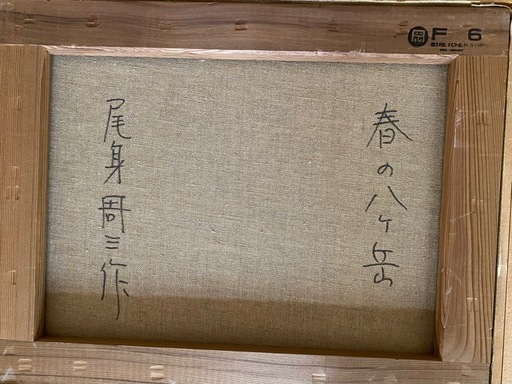 岡 F 6
春の八ヶ岳
尾身周三作